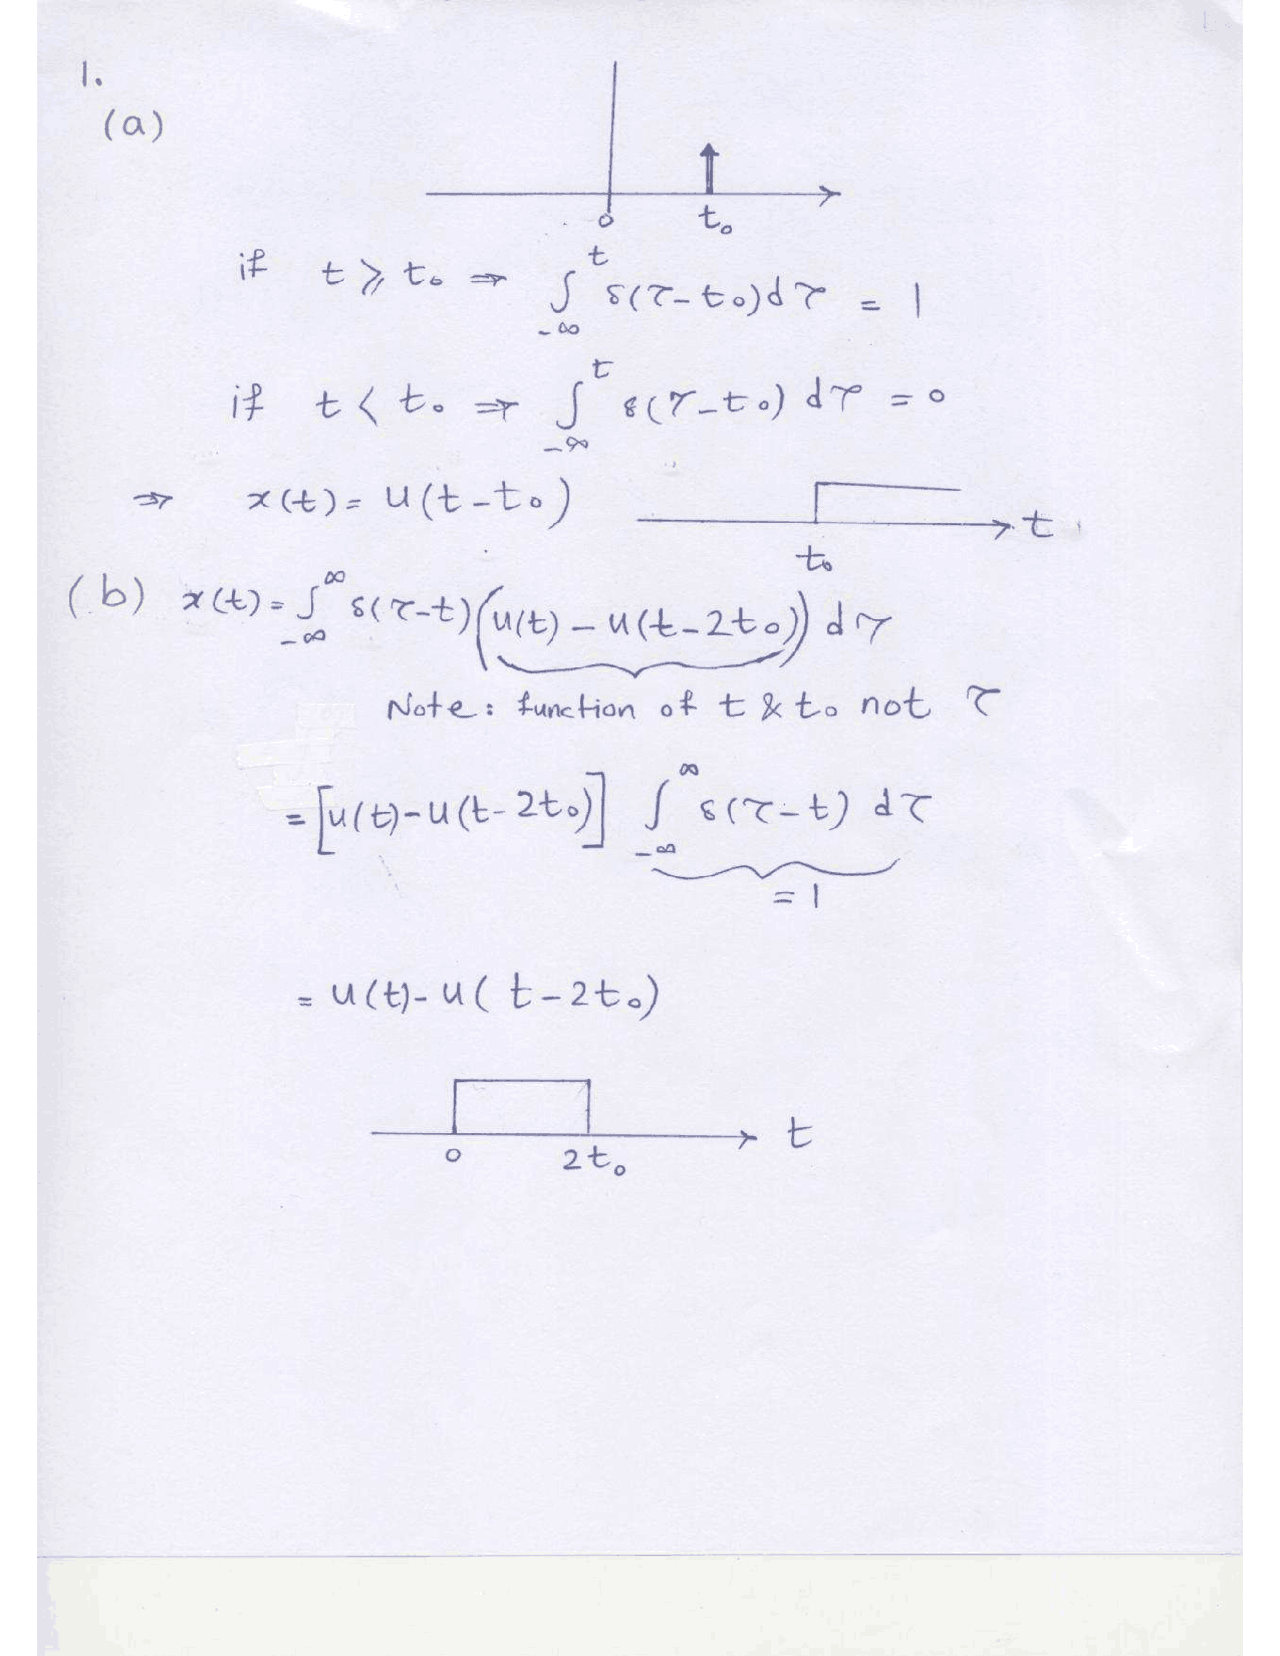 1.
(a)
0 t₀
if t ⩾ t₀ ⇒ ∫_{-∞}^{t} δ(τ-t₀)dτ = 1
if t < t₀ ⇒ ∫_{-∞}^{t} δ(τ-t₀) dτ = 0
⇒ x(t) = u(t-t₀) t
t₀
(b) x(t) = ∫_{-∞}^{∞} δ(τ-t)(u(t) - u(t-2t₀)) dτ
Note: function of t & t₀ not τ
= [u(t)-u(t-2t₀)] ∫_{-∞}^{∞} δ(τ-t) dτ
= 1
= u(t)-u(t-2t₀)
t
0 2t₀